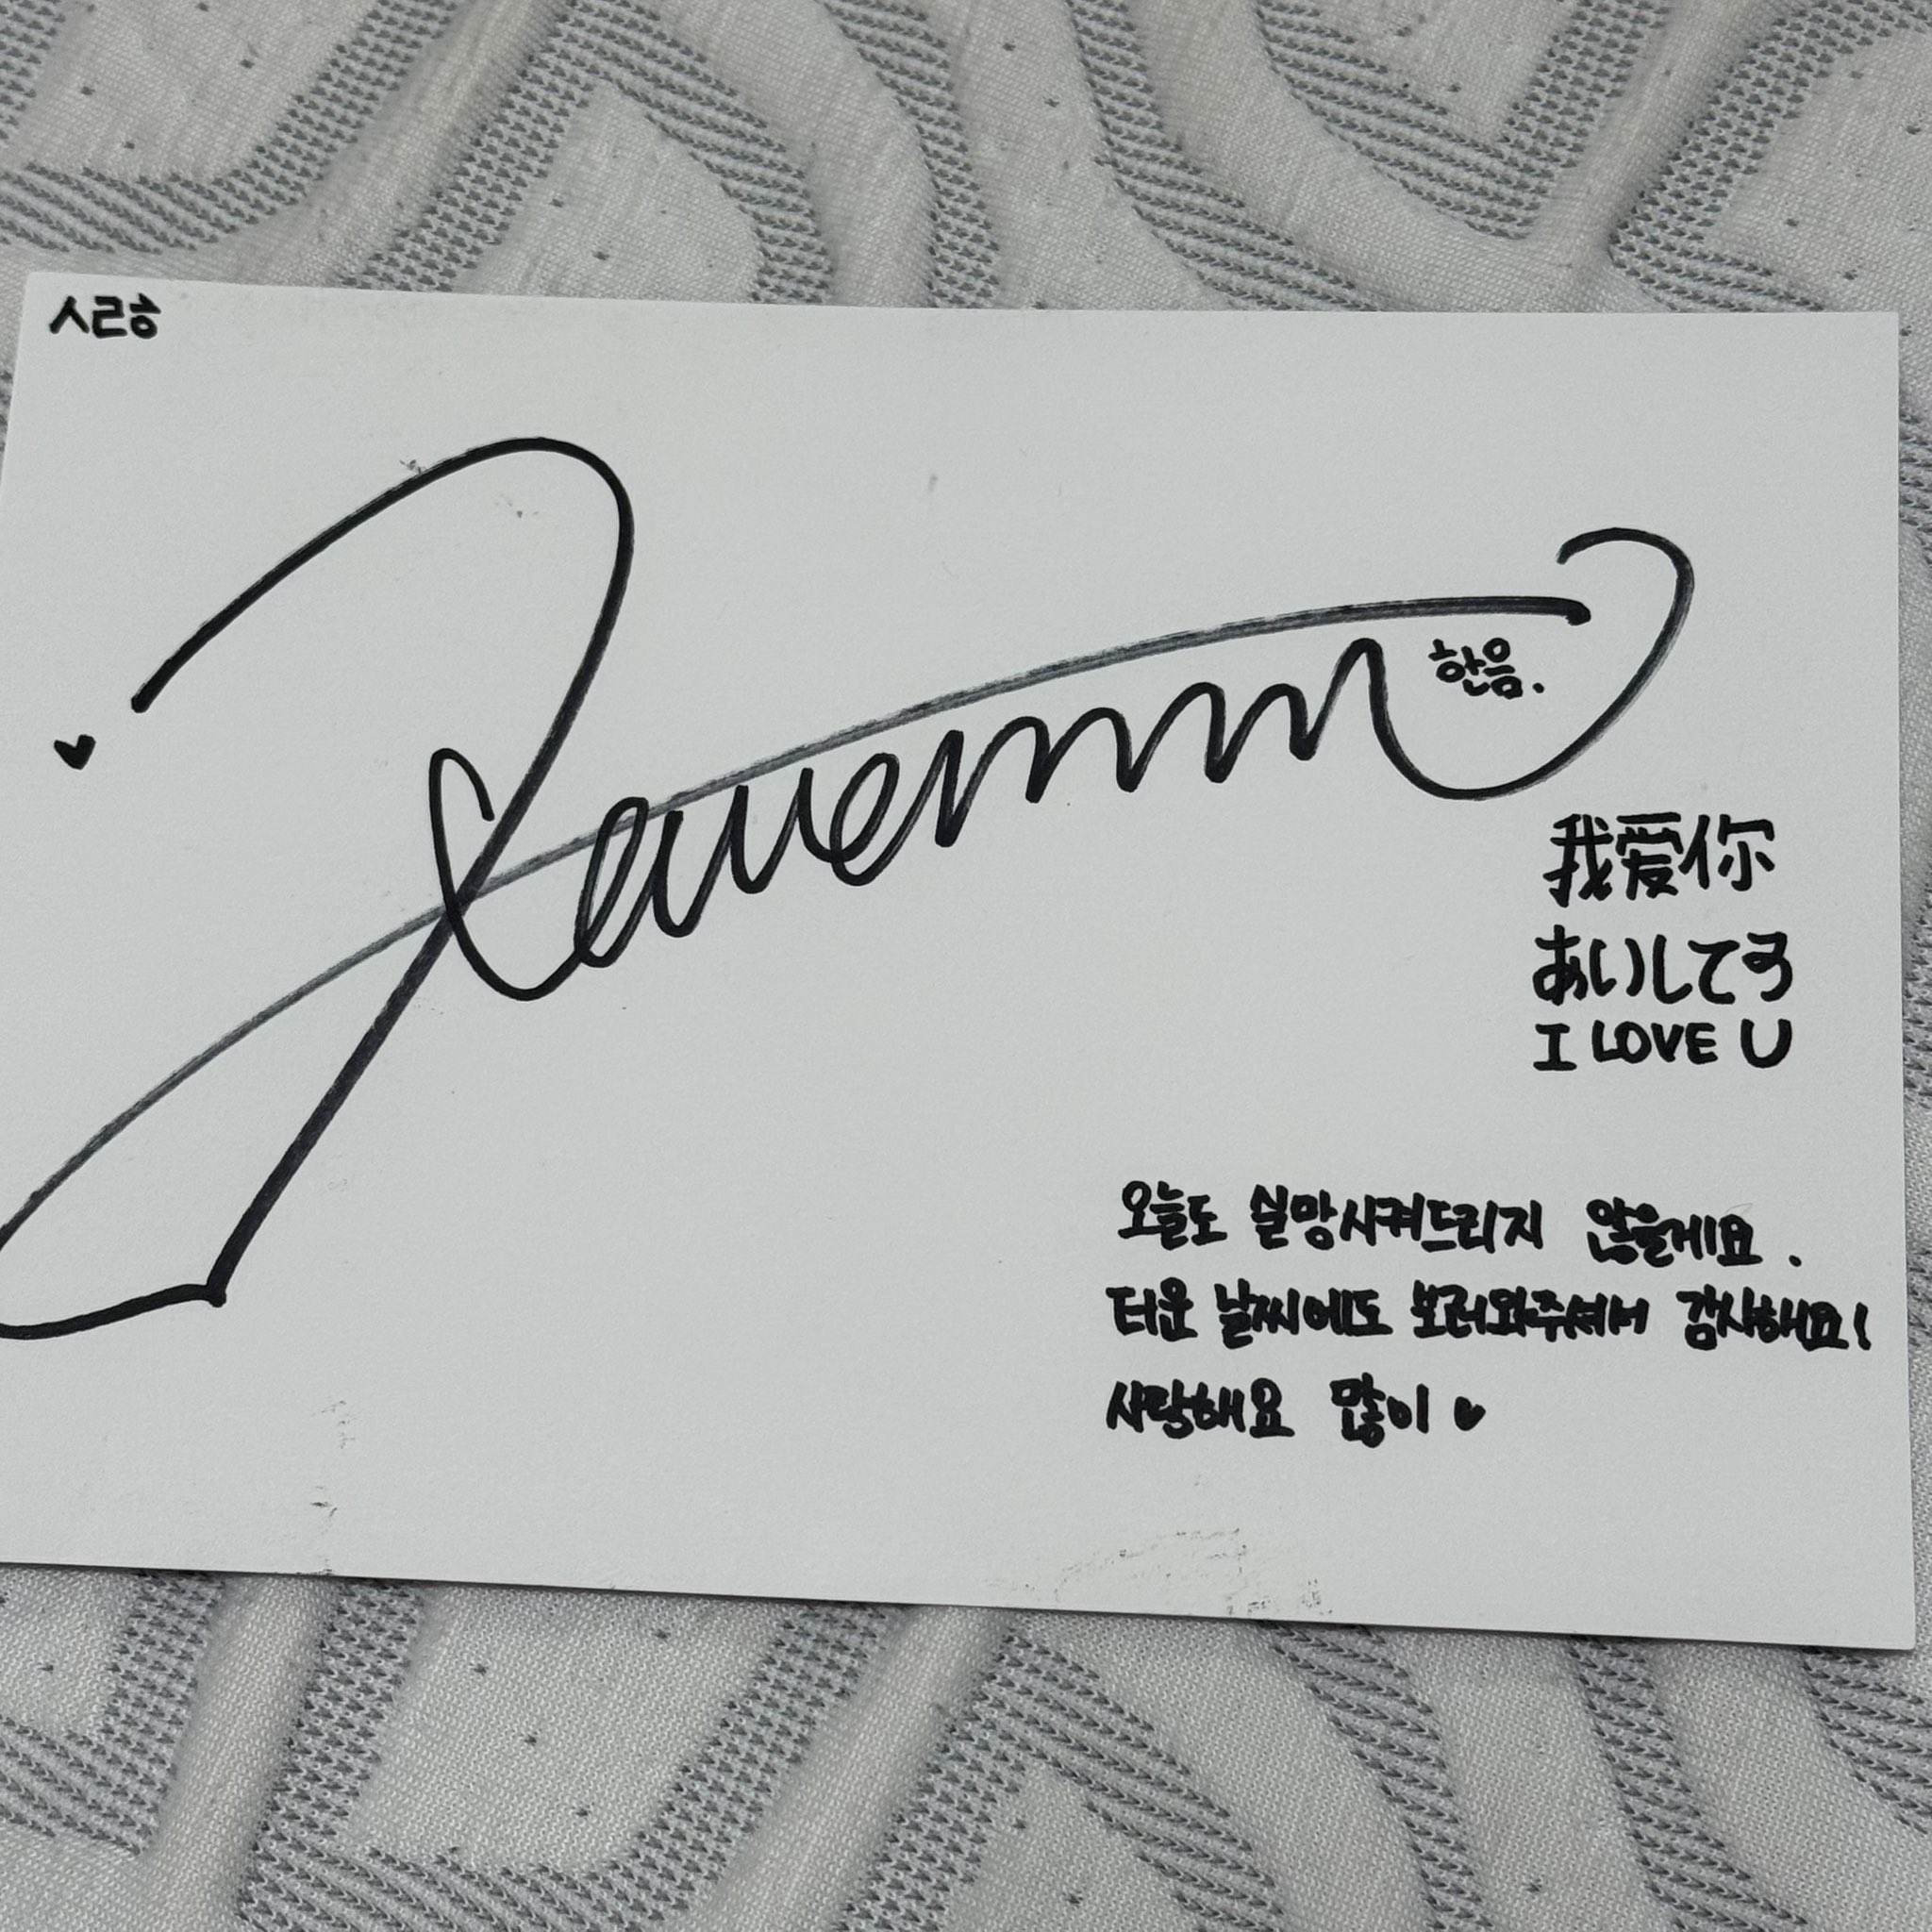 ㅅㄹㅎ
한음.
我爱你
あいしてる
I LOVE U
오늘도 실망시켜드리지 않을게요.
더운 날씨에도 보러와주셔서 감사해요!
사랑해요 많이